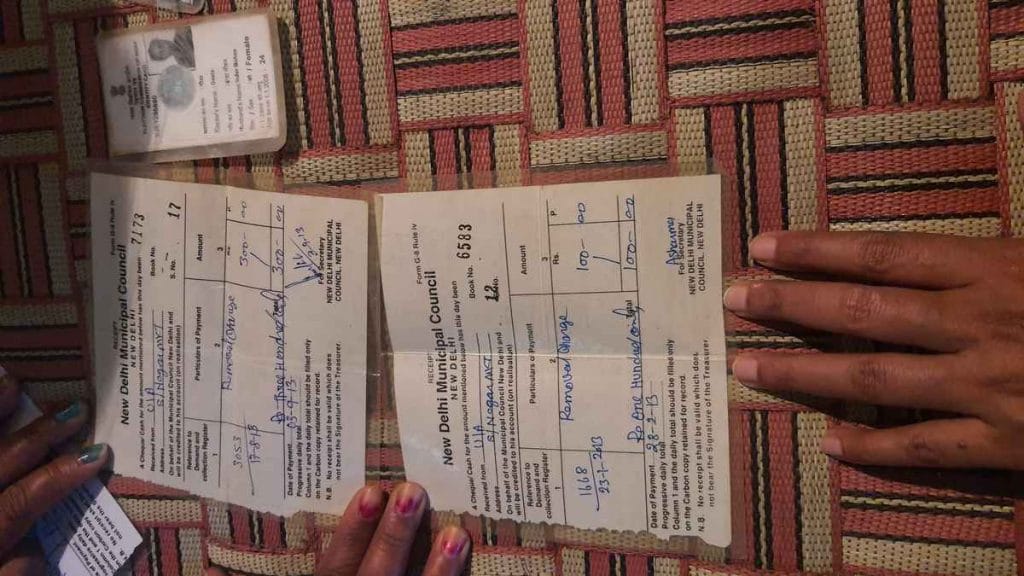 Form G-8 Rule iv
RECEIPT
New Delhi Municipal Council
NEW DELHI
A Cheque/ Cash for the amount mentioned below has this day been
Received from U/A Book No. 7173
Address S/Nagar MKT S. No. 17
On behalf of the Municipal Council New Delhi and
will be credited to his account (on realisation)
Reference to Demand and collection Register Particulars of Payment Amount
1 2 3
3053 Removal Charge 300 - 00
17-8-13
300 - 00
Rs Three Hundred only
Date of Payment 03-9-13
Progressive daily total
Column 1 and the daily total should be filled only
on the Carbon copy retained for record.
For Secretary
NEW DELHI MUNICIPAL
COUNCIL, NEW DELHI
N.B. No receipt shall be valid which does
not bear the Signature of the Treasurer.
Form G-8 Rule iv
RECEIPT
New Delhi Municipal Council
NEW DELHI
A Cheque/ Cash for the amount mentioned below has this day been
Received from U/A Book No. 6583
Address S/Nagar MKT S. No. 12
On behalf of the Municipal Council New Delhi and
will be credited to his account (on realisation)
Reference to Demand and Collection Register Particulars of Payment Amount
1 2 3
Rs. P.
1168 Removal Charge 100 - 00
23-1-2013
Total 100 - 00
Rs One Hundred only
Date of Payment 28-2-13
Progressive daily total
Column 1 and the daily total should be filled only
on the Carbon copy retained for record.
For Secretary
NEW DELHI MUNICIPAL
COUNCIL, NEW DELHI
N.B. No receipt shall be valid which does
not bear the Signature of the Treasurer.